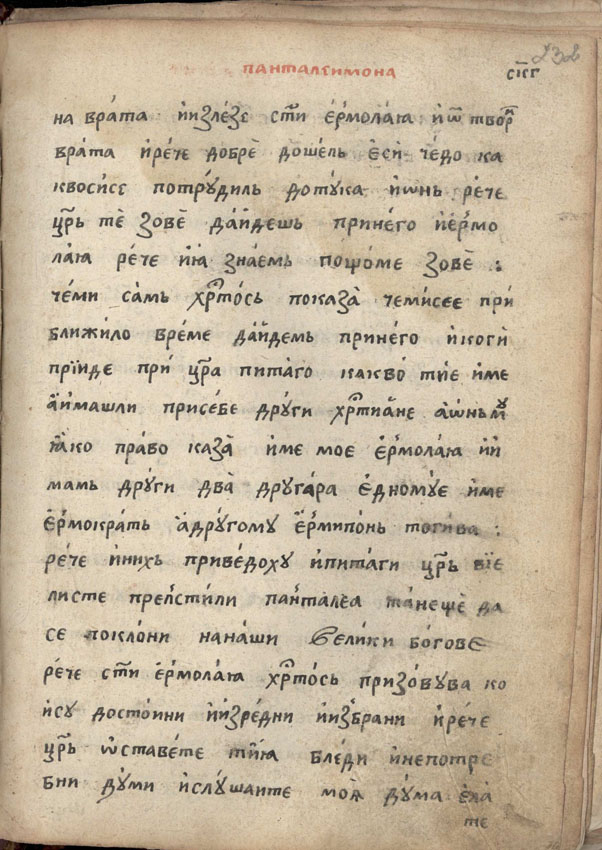 ПАНТАЛЕИМОНА
ск҃г
на вра́та и҆и҆злѣзе ст҃и е҆рмола́ꙗ и҆ѿ твор
врата и҆ре́че добрѐ до́шель е҆сѝ че́до ка
квосисе потру́диль дотꙋка и҆ѡнь ре́че
ца҃рь те̏ зовѐ да́и҆дешь принего и҆е҆рмо
ла́ꙗ ре́че и҆ꙗ̀ знаемь пощоме зовѐ :
че́ми самь хрⷭ҇тось показа̀ чемисее при
ближило вре́ме да́и҆демь прине́го и҆коги
прїиде при ца҃ра питаго какво́ тѝе и҆ме
а҆и҆машли присебе дрꙋги хрⷭ҇тиане а҆ѡньмꙋ
ꙗ҆ко право каза̀ и҆ме мое е҆рмола́ꙗ и҆и҆
мамь дрꙋги два̀ дрꙋга́ра е҆дномꙋе и҆ме
е҆рмократь а҆дрꙋгомꙋ е҆рмипонь тогива :
ре́че и҆нихь приведохꙋ и҆пита́ги ца҃рь вїе
листе прелстили панталеа танещѐ да
се поклони нана́ши велики бо́гове
ре́че ст҃и е҆рмола́ꙗ хрⷭ҇тось призо́вꙋва ко
и҆сꙋ достоини и҆и҆зре́дни и҆и҆збрани и҆ре́че
ца҃рь ѡ҆ставе́те тиꙗ бледи и҆непотре
бни дꙋми и҆слꙋшаите моꙗ̀ дꙋма
те